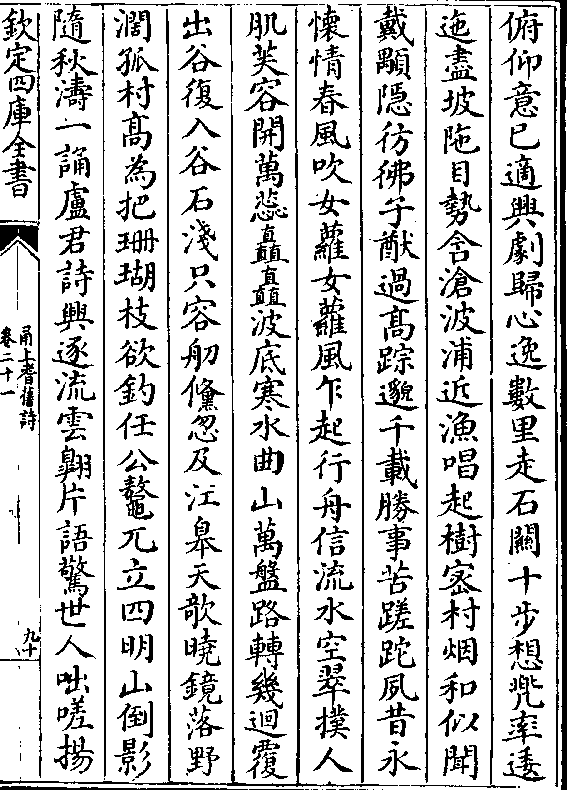 俯仰意已適興劇歸心逸數里走石闗十步想兠率逶
迤盡坡陁目勢含滄波浦近漁唱起樹宻村烟和似聞
戴顒隠彷彿子猷過髙踪邈千載勝事苦蹉跎夙昔永
懷情春風吹女蘿女蘿風乍起行舟信流水空翠撲人
肌芙容開萬蕊矗矗波底寒水曲山萬盤路轉幾迴覆
出谷復入谷石淺只容舠儵忽及江臯天欹曉鏡落野
濶孤村髙為把珊瑚枝欲釣任公鼇兀立四明山倒影
隨秋濤一誦盧君詩興逐流雲翺片語驚世人咄嗟揚
欽定四庫全書
甬上耆舊詩
卷二十一
九十